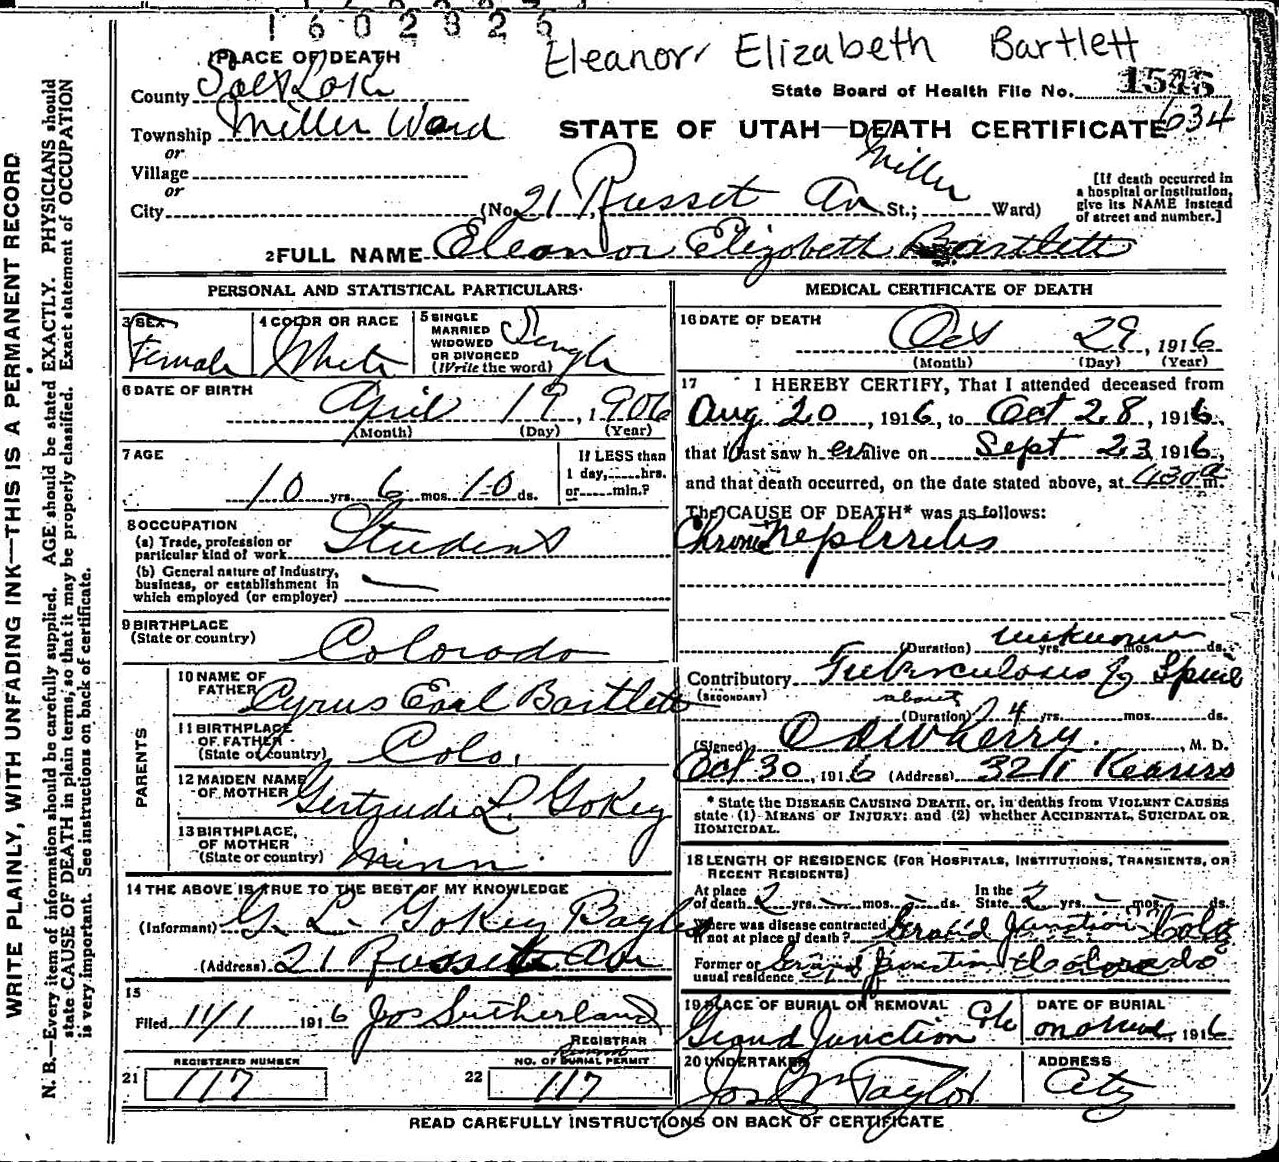 1602825
Eleanor Elizabeth Bartlett
1 PLACE OF DEATH
County Salt Lake
State Board of Health File No. 1545
Township Miller Ward
634
STATE OF UTAH—DEATH CERTIFICATE
or
Village
or
City (No. 21 Russet Av St.; Miller Ward)
[If death occurred in a hospital or institution, give its NAME instead of street and number.]
2 FULL NAME Eleanor Elizabeth Bartlett
PERSONAL AND STATISTICAL PARTICULARS
3 SEX Female
4 COLOR OR RACE White
5 SINGLE MARRIED WIDOWED OR DIVORCED (Write the word) Single
6 DATE OF BIRTH
April 19, 1906
(Month) (Day) (Year)
7 AGE
10 yrs. 6 mos. 10 ds.
If LESS than 1 day, hrs. or min.?
8 OCCUPATION
(a) Trade, profession or particular kind of work Student
(b) General nature of industry, business, or establishment in which employed (or employer) —
9 BIRTHPLACE (State or country) Colorado
PARENTS
10 NAME OF FATHER Cyrus Earl Bartlett
11 BIRTHPLACE OF FATHER (State or country) Colo.
12 MAIDEN NAME OF MOTHER Gertrude L. GoKey
13 BIRTHPLACE OF MOTHER (State or country) Minn.
14 THE ABOVE IS TRUE TO THE BEST OF MY KNOWLEDGE
(Informant) G. L. GoKey
(Address) 21 Russett Av
15
Filed 11/1 1916 Jos Sutherland
REGISTRAR
REGISTERED NUMBER
21 117
NO. OF BURIAL PERMIT
22 117
MEDICAL CERTIFICATE OF DEATH
16 DATE OF DEATH
Oct 29, 1916
(Month) (Day) (Year)
17 I HEREBY CERTIFY, That I attended deceased from
Aug 20, 1916, to Oct 28, 1916,
that I last saw her alive on Sept 23 1916,
and that death occurred, on the date stated above, at 430 a m.
The CAUSE OF DEATH* was as follows:
Chronic Nephritis
(Duration) unknown yrs. mos. ds.
Contributory Tuberculosis of Spine
(SECONDARY)
about
(Duration) 4 yrs. mos. ds.
(Signed) , M. D.
Oct 30, 1916 (Address) Kearns
* State the DISEASE CAUSING DEATH, or, in deaths from VIOLENT CAUSES
state (1) MEANS OF INJURY; and (2) whether ACCIDENTAL, SUICIDAL OR
HOMICIDAL.
18 LENGTH OF RESIDENCE (FOR HOSPITALS, INSTITUTIONS, TRANSIENTS, OR
RECENT RESIDENTS)
At place of death 2 yrs. – mos. – ds. In the State 2 yrs. – mos. – ds.
Where was disease contracted if not at place of death? Grand Junction Colo
Former or usual residence Grand Junction Colorado
19 PLACE OF BURIAL OR REMOVAL
Grand Junction Colo
DATE OF BURIAL
1916
20 UNDERTAKER
Jos Wm Taylor
ADDRESS
City
READ CAREFULLY INSTRUCTIONS ON BACK OF CERTIFICATE
WRITE PLAINLY, WITH UNFADING INK—THIS IS A PERMANENT RECORD
N. B.—Every item of information should be carefully supplied. AGE should be stated EXACTLY. PHYSICIANS should
state CAUSE OF DEATH in plain terms, so that it may be properly classified. Exact statement of OCCUPATION
is very important. See instructions on back of certificate.